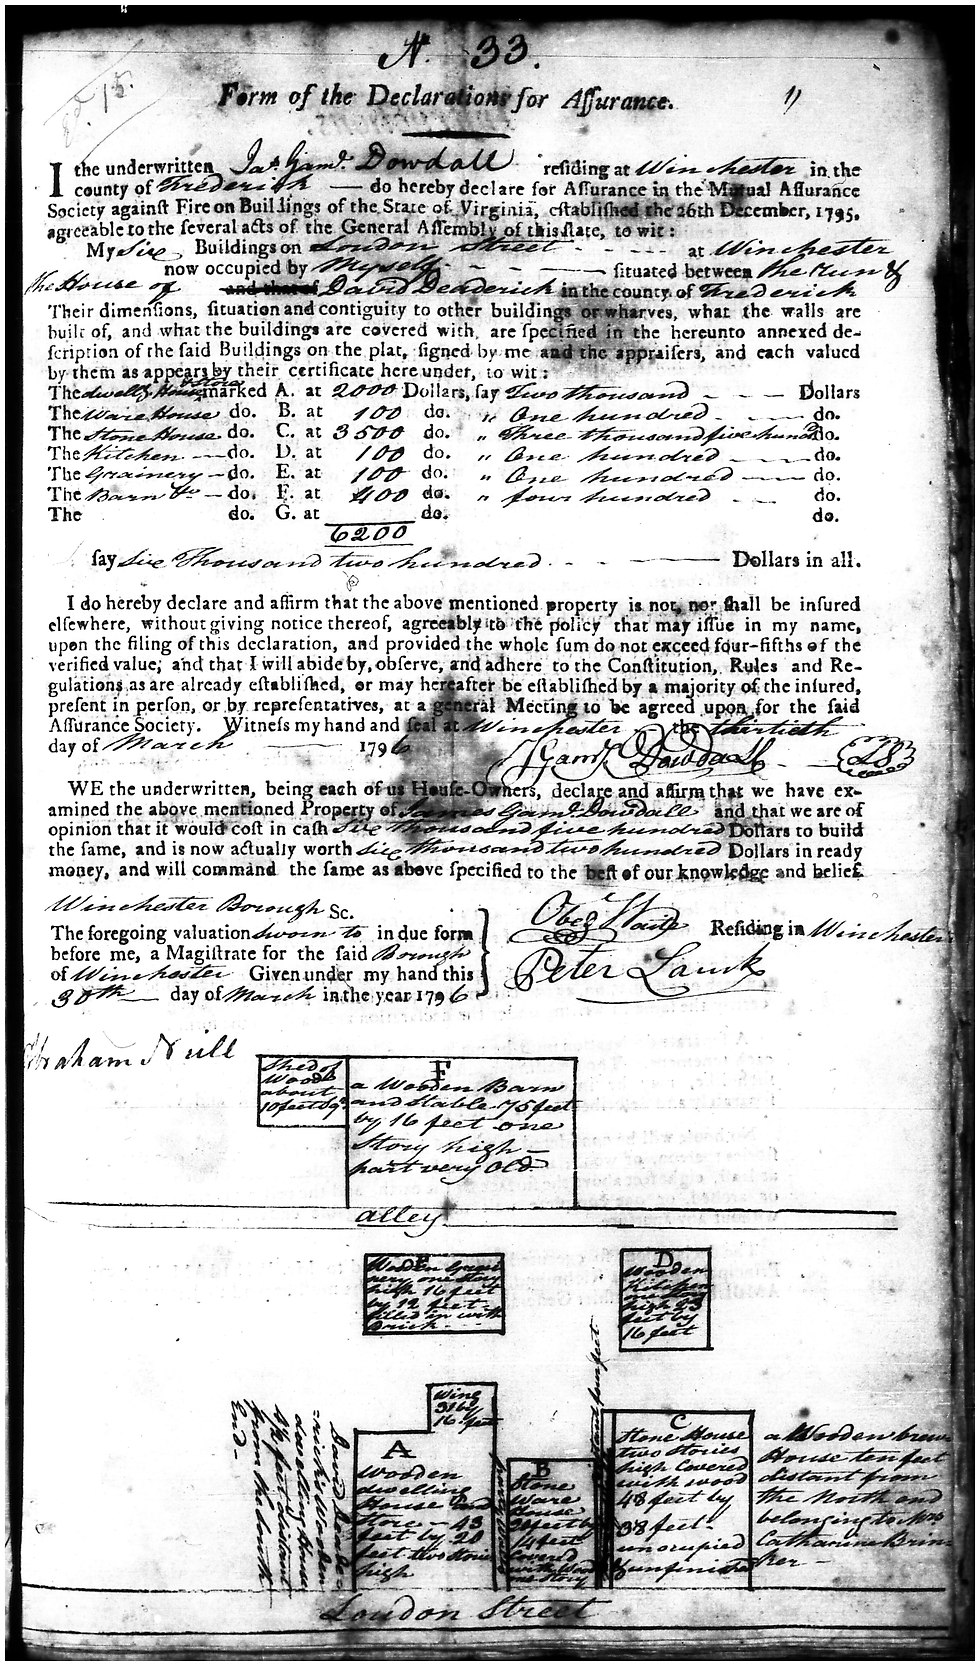 N. 33.
Form of the Declarations for Aſſurance.
I the underwritten Jas. Gaml. Dowdall reſiding at Winchester in the
county of Frederick — do hereby declare for Aſſurance in the Mutual Aſſurance
Society againſt Fire on Buildings of the State of Virginia, eſtabliſhed the 26th December, 1795,
agreeable to the ſeveral acts of the General Aſſembly of this ſtate, to wit:
My Six Buildings on London Street at Winchester
now occupied by Myself ſituated between the Run &
the House of and that of David Deaderick in the county of Frederick
Their dimenſions, ſituation and contiguity to other buildings or wharves, what the walls are
built of, and what the buildings are covered with, are ſpecified in the hereunto annexed de-
ſcription of the ſaid Buildings on the plat, ſigned by me and the appraiſers, and each valued
by them as appears by their certificate here under, to wit:
The dwellg. House & Store marked A. at 2000 Dollars, ſay Two thousand Dollars
The Ware House do. B. at 100 do. " One hundred do.
The Stone House do. C. at 3500 do. " Three thousand five hund do.
The Kitchen do. D. at 100 do. " One hundred do.
The Grainery do. E. at 100 do. " One hundred do.
The Barn &c do. F. at 400 do. " four hundred do.
The do. G. at do. do.
6200
ſay Six Thousand two hundred Dollars in all.
I do hereby declare and affirm that the above mentioned property is not, nor ſhall be inſured
elſewhere, without giving notice thereof, agreeably to the policy that may iſſue in my name,
upon the filing of this declaration, and provided the whole ſum do not exceed four-fifths of the
verified value; and that I will abide by, obſerve, and adhere to the Conſtitution, Rules and Re-
gulations as are already eſtabliſhed, or may hereafter be eſtabliſhed by a majority of the inſured,
preſent in perſon, or by repreſentatives, at a general Meeting to be agreed upon for the ſaid
Aſſurance Society. Witneſs my hand and ſeal at Winchester the thirtieth
day of March 1796
J Gaml. Dowdall
WE the underwritten, being each of us Houſe-Owners, declare and affirm that we have ex-
amined the above mentioned Property of James Gaml. Dowdall and that we are of
opinion that it would coſt in caſh Six thousand five hundred Dollars to build
the ſame, and is now actually worth Six thousand two hundred Dollars in ready
money, and will command the ſame as above ſpecified to the beſt of our knowledge and belief.
Winchester Borough Sc.
The foregoing valuation sworn to in due form
before me, a Magiſtrate for the ſaid Borough
of Winchester Given under my hand this
30th day of March in the year 1796
Reſiding in Winchester
Peter Lauck
Abraham Neill
Shed of
Wood
about
10 feet Sqr.
F
a Wooden Barn
and Stable 75 feet
by 16 feet one
Story high —
part very Old.
alley
Wooden Grain
nery one Story
high 16 feet
by 12 feet
filled in with
Brick
D
Wooden
Kitchen
one Story
high 23
feet by
16 feet
Wing
31 by
16 feet
David Deade-
rick's Wooden
dwelling House
4½ feet distant
from the South
End —
A
Wooden
dwelling
House and
Store — 43
feet by 20
feet two stories
high
B
Stone
Ware
House
14 feet
Covered
with Wood
one Story
C
Stone House
two Stories
high Covered
with wood
48 feet by
38 feet
unoccupied
& unfinished
a Wooden brew
House ten feet
distant from
the North end
belonging to Mrs
Catharine Brin-
ker —
London Street